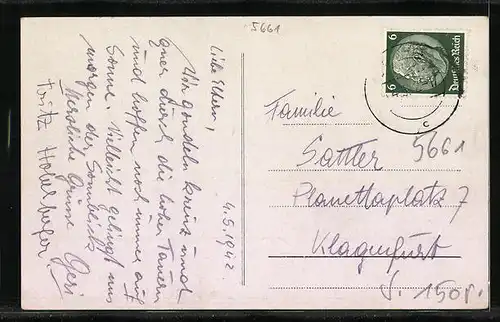 5661
4.5.1942
Liebe Eltern,
Wir gondeln kreuz und
quer durch die hohen Tauern
und hoffen noch immer auf
Sonne. Vielleicht gelingt uns
morgen der Sonnblick
Herzliche Grüsse Geri
Fritz
6 6
Deutsches Reich
c
Familie
Sattler
5661
Planettaplatz 7
Klagenfurt
S. 150,-